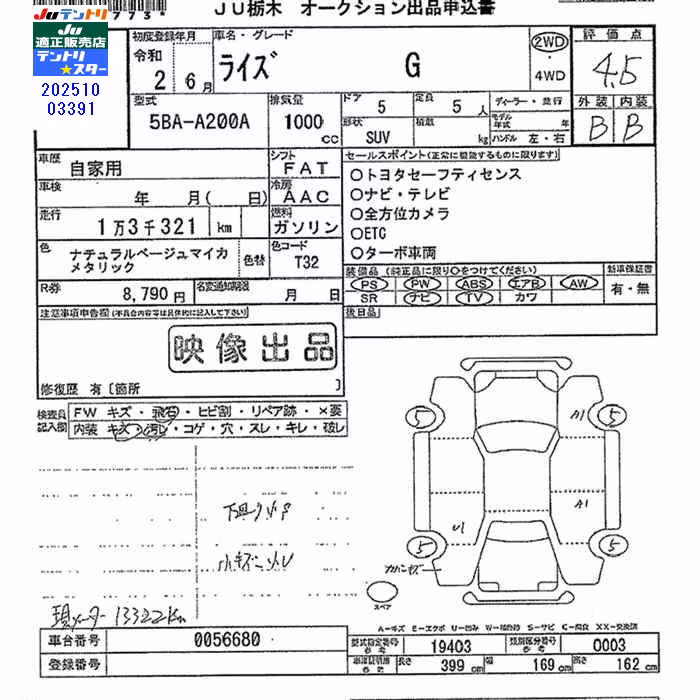 773
JU栃木 オークション出品申込書
JUテントリ
JU適正販売店
テントリ★スター
202510
03391
初度登録年月 車名・グレード
令和 2年 6月 ライズ G 2WD・4WD
評価点
4.5
外装 内装
B B
型式 5BA-A200A
排気量 1000 cc
ドア 5 定員 5人
形状 SUV 積載 kg
ディーラー・並行
モデル年式 年
ハンドル 左・右
車歴 自家用
シフト FAT
車検 年 月( 日)
冷房 AAC
走行 1万3千321 km
燃料 ガソリン
色 ナチュラルベージュマイカメタリック 色替
色コード T32
R券 8,790円
名変通知期限 月 日
セールスポイント(正常に機能するものに限ります)
○トヨタセーフティセンス
○ナビ・テレビ
○全方位カメラ
○ETC
○ターボ車両
装備品 (純正品に限り○をつけてください)
PS PW ABS エアB AW
SR ナビ TV カワ
新車保証書
有・無
後日品
注意事項申告欄(不具合内容等は具体的に記入して下さい)
映像出品
修復歴 有〔箇所 〕
検査員記入欄
FW キズ・飛石・ヒビ割・リペア跡・×要
内装 キズ・汚レ・コゲ・穴・スレ・キレ・破レ
下廻り小サビ
小キズ・凹
現メーター 13322km
5 5
A1
A1
U1
5 5
スペア
A-キズ E-エクボ U-凹み W-補修跡 S-サビ C-腐食 XX-交換済
車台番号 0056680
登録番号
型式指定番号 参考 19403
類別区分番号 参考 0003
車体寸法 参考 長さ 399 cm 幅 169 cm 高さ 162 cm